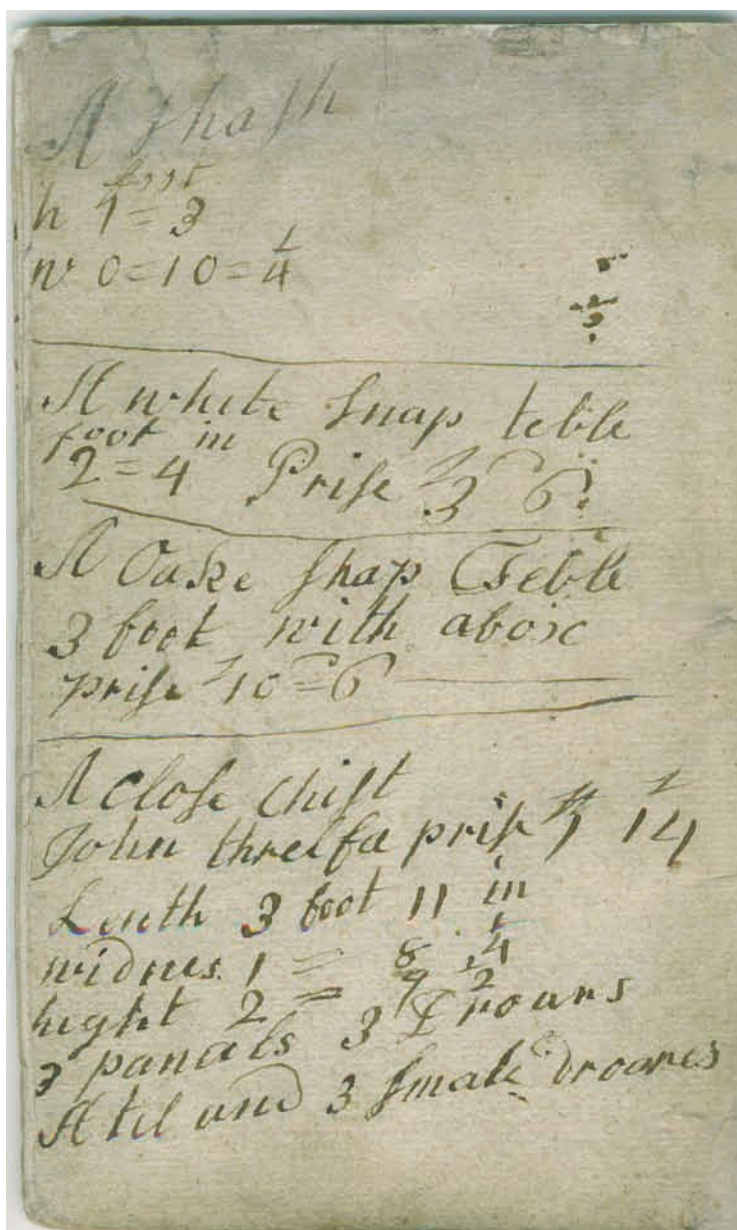 A shash
foot
h 1=3
w 0=10=1/4
A white snap teble
foot in
2=4 Prise s3 6d
A Oake snap Teble
3 foot with a boxe
prise s10=6
A close Chist
John threlfa prise 1 14
Lenth 3 foot 11 in
widnes. 1 = 8 1/4
hight 2 = 9 1/2
3 panals 3 Droars
A til and 3 smale droares